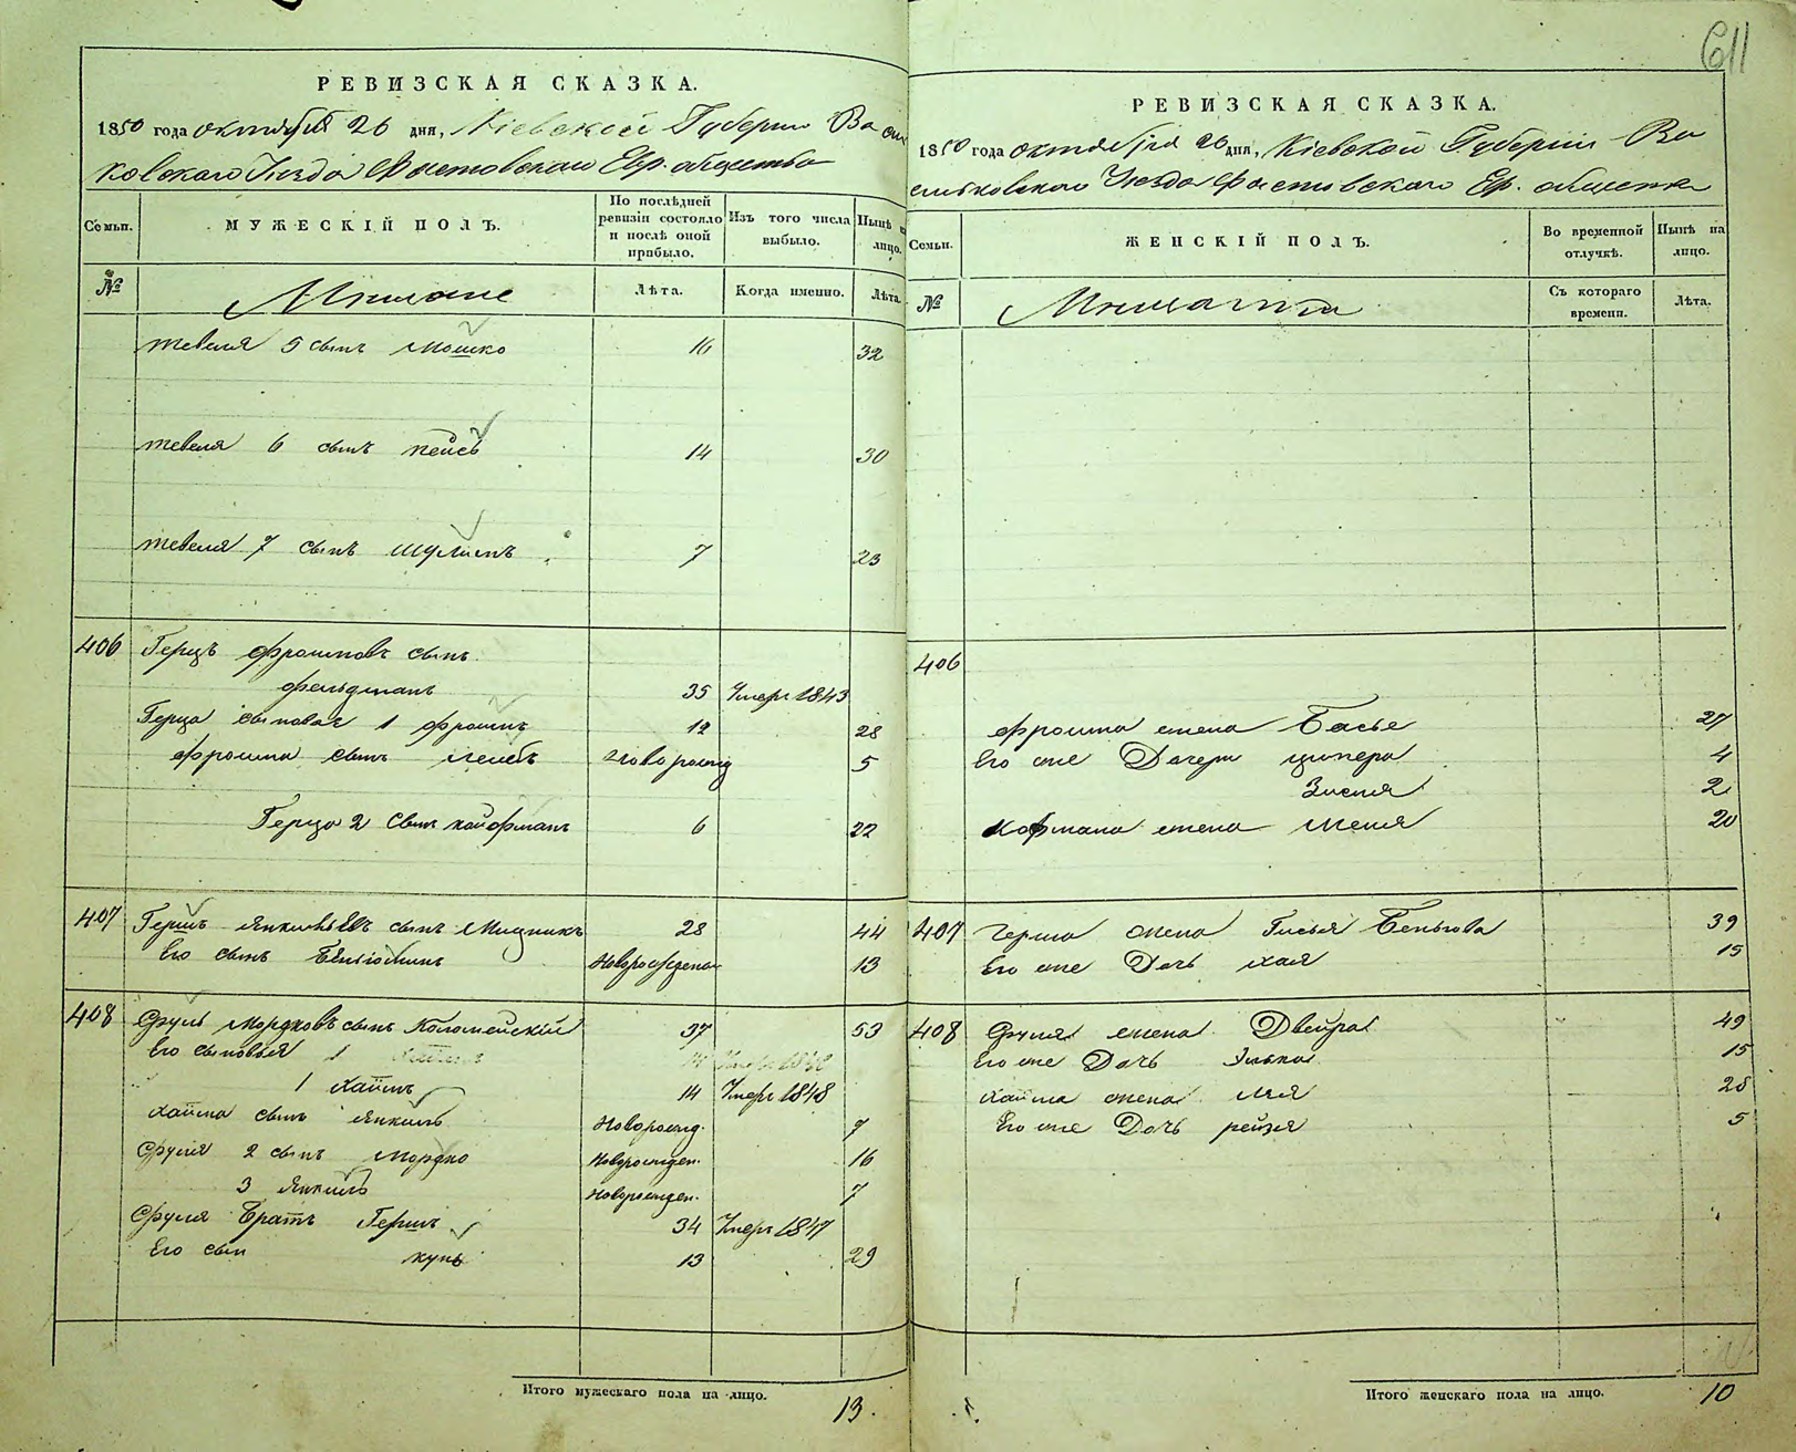 611
РЕВИЗСКАЯ СКАЗКА.
1850 года октября 26 дня, Кіевской Губерніи Василь
ковскаго Уезда Фастовскаго Евр. общества
Семьи.
МУЖЕСКІЙ ПОЛЪ.
По послѣдней ревизіи состояло и послѣ оной прибыло.
Изъ того числа выбыло.
Нынѣ на лицо.
№
Мещане
Лѣта.
Когда именно.
Лѣта.
тевеля 5 сынъ Мошко 16 32
тевеля 6 сынъ пейсъ 14 30
тевеля 7 сынъ шулимъ 7 23
406 Герцъ фроимовъ сынъ
фельдманъ 35 Умеръ 1843
Герца сыновья 1 фроимъ 12 28
фроима сынъ лейбъ новорожд 5
Герца 2 сынъ кайфманъ 6 22
407 Гершъ янкилевъ сынъ Мидникъ 28 44
Его сынъ Беньюминъ Новорожден 13
408 Сруль Мордковъ сынъ Коломейскій 37 53
Его сыновья 1
1 хаимъ 14 Умеръ 1848
хаима сынъ янкиль Новорожд. 7
Сруля 2 сынъ Мордко Новорожден. 16
3 янкиль Новорожден. 7
Сруля братъ Гершъ 34 Умеръ 1847
Его сын купь 13 29
Итого мужескаго пола на лицо. 13.
РЕВИЗСКАЯ СКАЗКА.
1850 года октября 26 дня, Кіевской Губерніи Ва
сильковскаго Уезда Фастовскаго Ер. общества
Семьи.
ЖЕНСКІЙ ПОЛЪ.
Во временной отлучкѣ.
Нынѣ на лицо.
№
Мещанки
Съ котораго времени.
Лѣта.
406
фроима жена Басье 27
Его же Дочери ципера 4
Зисля 2
Кофмана жена Меня 20
407 Герша жена Гисья Беньова 39
Его же Дочь хая 15
408 Сруля жена Двейра 49
Его же Дочь Элька 15
хаима жена лея 25
Его же Дочь рейзя 5
Итого женскаго пола на лицо. 10